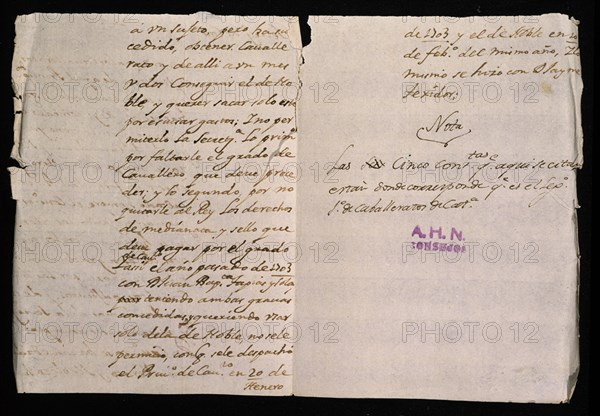 á un sujeto, pero ha su
cedido, obtener Cavalle
rato y de alli a un mes
y dos Conseguir el de No
ble, y querer sacar solo este
por escusar gastos; I no per
mitelo la Secret.ª Lo prim.º
por faltarle el grado de
Cavallero que deve prece
der; y lo Segundo por no
quitarle al Rey Los derechos
de medianata y sello que
deve pagar por el grado
de Cau.º
el año pasado de 1703
con Tapias y
por teniendo ambas gracias
concedidas, queriendo usar
solo de la de Noble, no se le
permitio, conq. se le despachó
el Priui.º de Cau.ro en 20 de
Henero
de 1703 y el de Noble en 20
de feb.º del mismo año, I lo
mismo se hizo con
texidor;
Nota
Las Cinco Con.tas q.e aqui se citan
estan donde corresponde q.e es el leg.º
1.º de Caballeratos de Cat.ª
A.H.N.
CONSEJOS
PHOTO 12